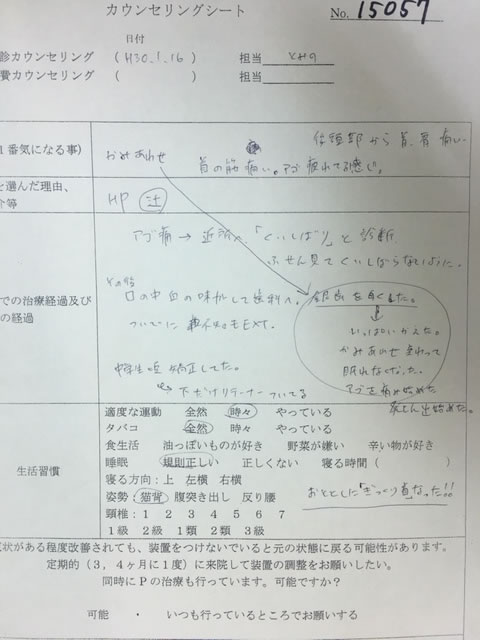 カウンセリングシート No. 15057
日付
診カウンセリング ( H30.1.16 ) 担当
費カウンセリング ( ) 担当
1番気になる事) かみあわせ 後頭部から首、肩痛い
首の筋痛い。アゴ疲れてる感じ。
を選んだ理由、
介等 HP 辻
アゴ痛→近所へ「くいしばり」と診断
ふせん見てくいしばらないように。
での治療経過及び
の経過
その後
口の中血の味がして歯科へ。銀歯を白くした。
ついでに親不知もEXT.
↓
いっぱいかえた。
かみあわせ変わって
眠れなくなった。
アゴも痛み始めた
中学生頃矯正してた。
下だけリテーナーついてる
生活習慣
適度な運動 全然 時々 やっている
タバコ 全然 時々 やっている
食生活 油っぽいものが好き 野菜が嫌い 辛い物が好き
睡眠 規則正しい 正しくない 寝る時間 ( )
寝る方向:上 左横 右横
姿勢:猫背 腹突き出し 反り腰
おととしに「ぎっくり首」なった!!
頸椎:1 2 3 4 5 6 7
1級 2級 1類 2類 3級
症状がある程度改善されても、装置をつけないでいると元の状態に戻る可能性があります。
定期的(3,4ヶ月に1度)に来院して装置の調整をお願いしたい。
同時にPの治療も行っています。可能ですか?
可能 ・ いつも行っているところでお願いする